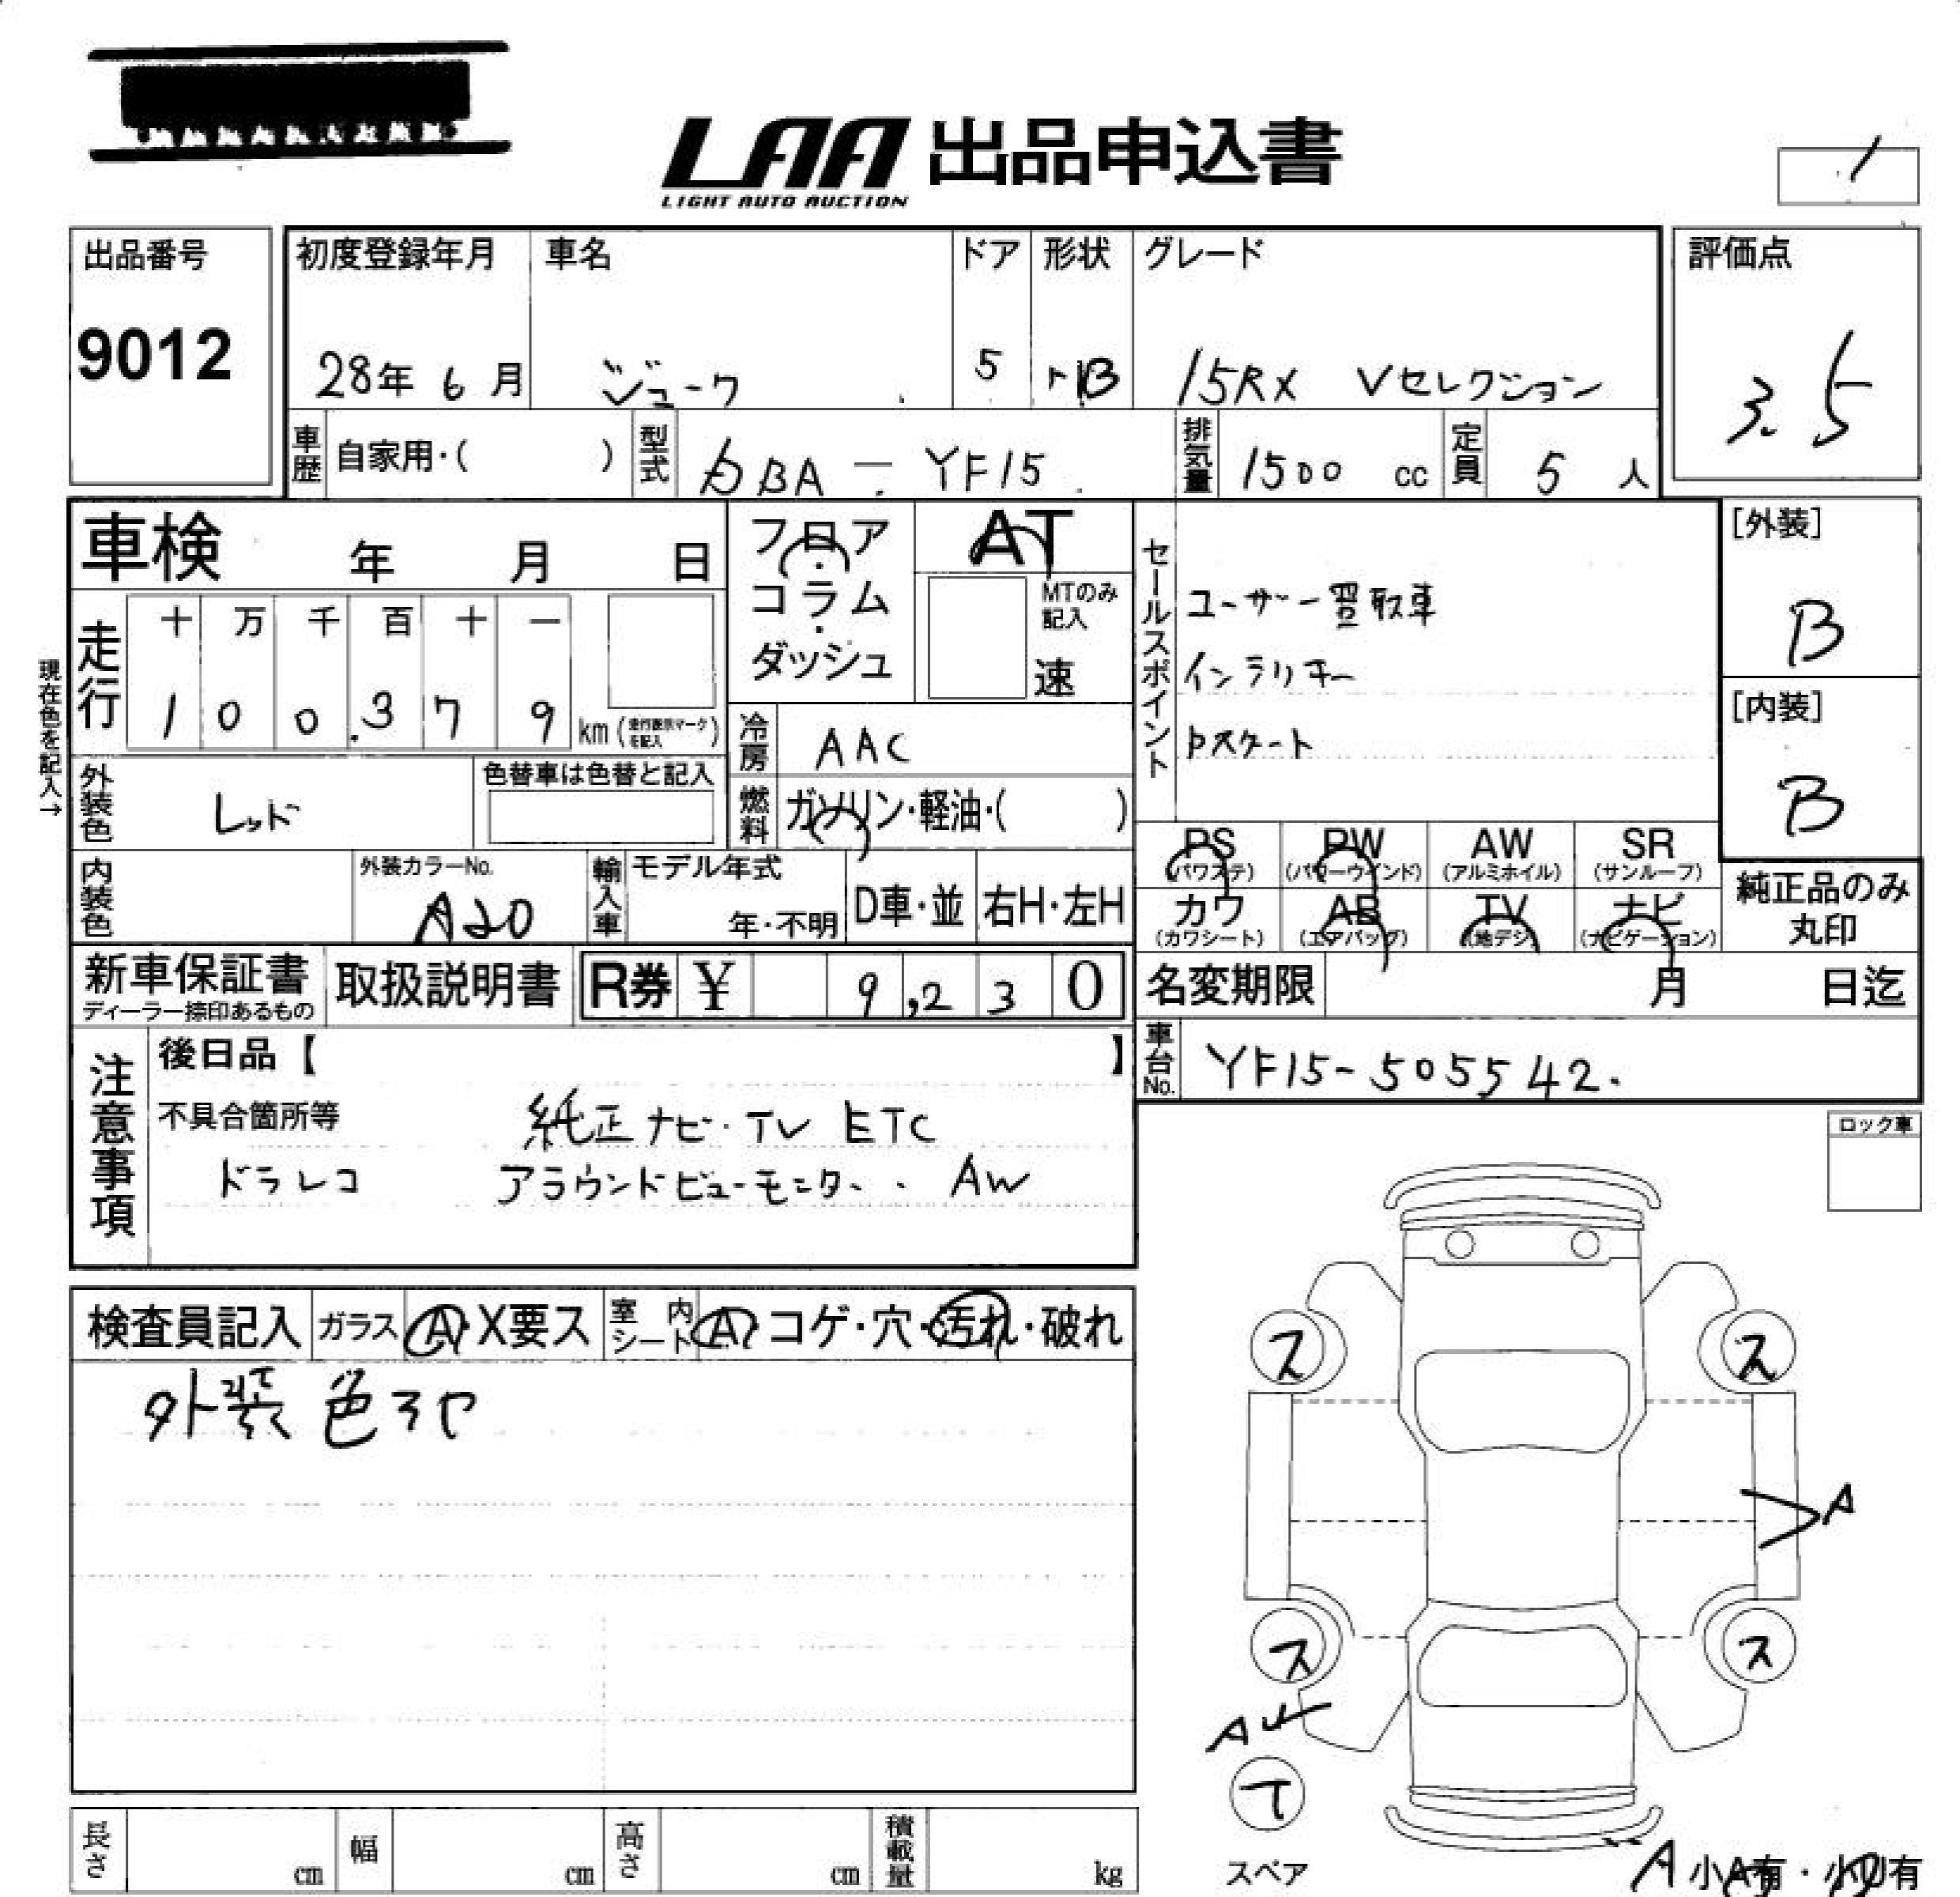 LAA 出品申込書
LIGHT AUTO AUCTION
出品番号
9012
初度登録年月
28年 6月
車名
ジューク
ドア
5
形状
HB
グレード
15RX Vセレクション
評価点
3.5
車歴 自家用・( )
型式 DBA-YF15
排気量 1500 cc
定員 5 人
車検 年 月 日
フロア・コラム・ダッシュ
AT
MTのみ記入
速
セールスポイント
ユーザー買取車
インテリキー
Pスタート
[外装]
B
[内装]
B
現在色を記入→
走行
十 万 千 百 十 一
1 0 0.3 7 9 km (走行表示マークを記入)
冷房 AAC
燃料 ガソリン・軽油・( )
外装色 レッド
色替車は色替と記入
PS (パワステ)
PW (パワーウインド)
AW (アルミホイル)
SR (サンルーフ)
カワ (カワシート)
AB (エアバッグ)
TV (地デジ)
ナビ (ナビゲーション)
純正品のみ丸印
内装色
外装カラーNo.
A20
輸入車 モデル年式
年・不明
D車・並
右H・左H
新車保証書
ディーラー捺印あるもの
取扱説明書
R券 ¥ 9,230
名変期限 月 日迄
車台No. YF15-505542.
注意事項
後日品【 】
不具合箇所等 純正ナビ・TV ETC
ドラレコ アラウンドビューモニター・AW
ロック車
検査員記入
ガラス A・X要ス
室内シート A・コゲ・穴・汚れ・破れ
外装 色ヲヤ
ス ス
A
ス ス
A
T
スペア
A 小A有・小U有
長さ cm
幅 cm
高さ cm
積載量 kg